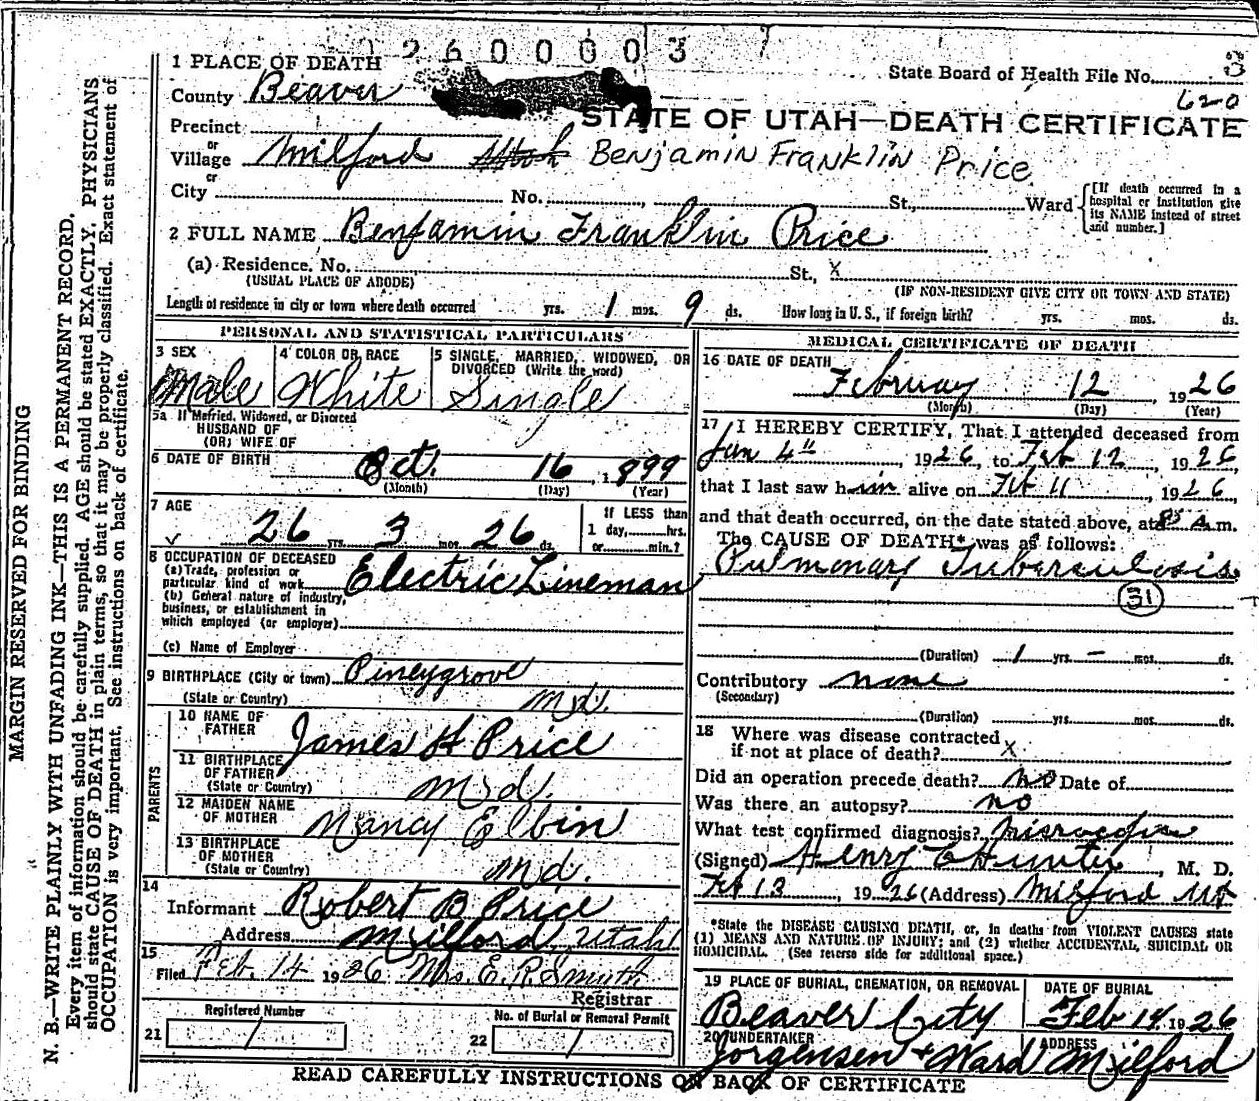 0 2 6 0 0 0 0 3 7
1 PLACE OF DEATH
State Board of Health File No. 3
County Beaver
620
STATE OF UTAH—DEATH CERTIFICATE
Precinct
or
Village Milford Utah Benjamin Franklin Price
or
City No. St., Ward
[If death occurred in a hospital or institution give its NAME instead of street and number.]
2 FULL NAME Benjamin Franklin Price
(a) Residence. No. St., X
(USUAL PLACE OF ABODE)
(IF NON-RESIDENT GIVE CITY OR TOWN AND STATE)
Length of residence in city or town where death occurred yrs. 1 mos. 9 ds. How long in U. S., if foreign birth? yrs. mos. ds.
PERSONAL AND STATISTICAL PARTICULARS
3 SEX
Male
4 COLOR OR RACE
White
5 SINGLE, MARRIED, WIDOWED, OR DIVORCED (Write the word)
Single
5a If Married, Widowed, or Divorced
HUSBAND OF
(OR) WIFE OF
6 DATE OF BIRTH Oct. 16, 1899
(Month) (Day) (Year)
7 AGE
26 yrs. 3 mos. 26 ds.
If LESS than
1 day,......hrs.
or......min.?
8 OCCUPATION OF DECEASED
(a) Trade, profession or
particular kind of work Electric Lineman
(b) General nature of industry,
business, or establishment in
which employed (or employer)
(c) Name of Employer
9 BIRTHPLACE (City or town) Pineygrove
(State or Country) Md.
PARENTS
10 NAME OF FATHER James H Price
11 BIRTHPLACE OF FATHER
(State or Country) Md.
12 MAIDEN NAME OF MOTHER Nancy Elbin
13 BIRTHPLACE OF MOTHER
(State or Country) Md.
14
Informant Robert B Price
Address Milford, Utah
15
Filed Feb. 14 1926 Mrs. E. R. Smyth
Registrar
Registered Number
21 1
No. of Burial or Removal Permit
22 1
MEDICAL CERTIFICATE OF DEATH
16 DATE OF DEATH
February 12 1926
(Month) (Day) (Year)
17 I HEREBY CERTIFY, That I attended deceased from
Jan 4th, 1926, to Feb 12, 1926
that I last saw him alive on Feb 11, 1926
and that death occurred, on the date stated above, at A.m.
The CAUSE OF DEATH* was as follows:
Pulmonary Tuberculosis
31
(Duration) 1 yrs. – mos. ds.
Contributory none
(Secondary)
(Duration) yrs. mos. ds.
18 Where was disease contracted
if not at place of death? X
Did an operation precede death? no Date of
Was there an autopsy? no
What test confirmed diagnosis?
(Signed) Henry C Hunter, M. D.
Feb 13, 1926 (Address) Milford Ut
*State the DISEASE CAUSING DEATH, or, in deaths from VIOLENT CAUSES state
(1) MEANS AND NATURE OF INJURY; and (2) whether ACCIDENTAL, SUICIDAL OR
HOMICIDAL. (See reverse side for additional space.)
19 PLACE OF BURIAL, CREMATION, OR REMOVAL
Beaver City
DATE OF BURIAL
Feb 14, 1926
20 UNDERTAKER
Jorgensen + Ward
ADDRESS
Milford
READ CAREFULLY INSTRUCTIONS ON BACK OF CERTIFICATE
MARGIN RESERVED FOR BINDING
N. B.—WRITE PLAINLY WITH UNFADING INK—THIS IS A PERMANENT RECORD.
Every item of information should be carefully supplied. AGE should be stated EXACTLY. PHYSICIANS
should state CAUSE OF DEATH in plain terms, so that it may be properly classified. Exact statement of
OCCUPATION is very important. See instructions on back of certificate.